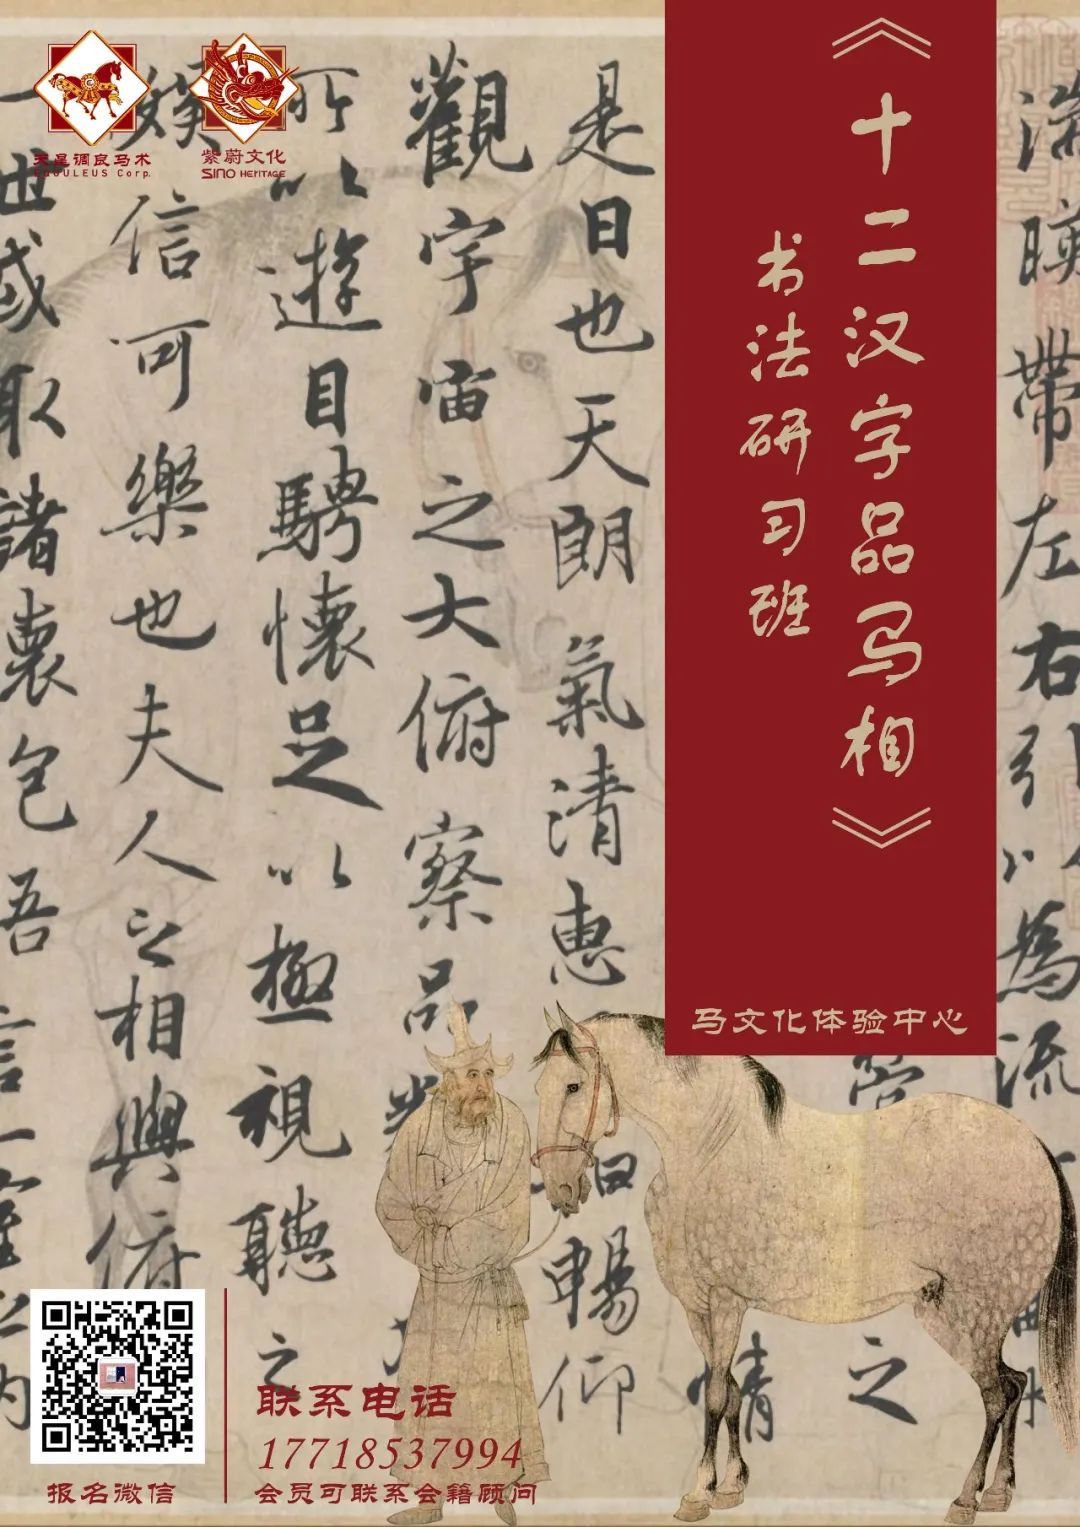 天星调良马术
EQUULEUS Corp.
紫蔚文化
SINO HERITAGE
《十二汉字品马相》
书法研习班
马文化体验中心
湍暎帶左右引以為流
是日也天朗氣清惠
暢仰
觀宇宙之大俯察品
所以遊目騁懷足以極視聽之
娱信可樂也夫人之相與俯
一世或取諸懷抱
吾
言一室之内
情
之
报名微信
联系电话
17718537994
会员可联系会籍顾问